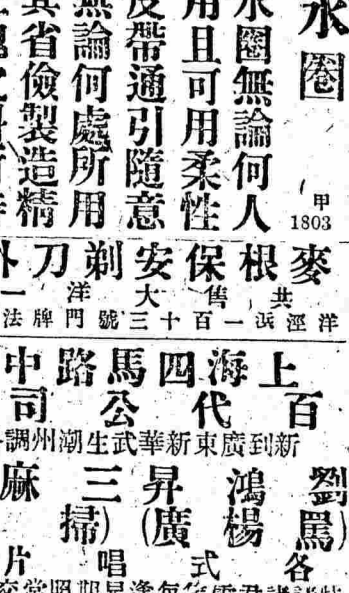 水圈
甲
1803
水圈無論何人
用且可用柔性
皮帶通引隨意
無論何處所用
其省儉製造精
麥根保安剃刀外
共售大洋一
洋涇浜一百十三號門牌法
上海四馬路中
百代公司
新到廣東新華武生潮州調
劉鴻昇三麻
(罵楊廣)(掃
各式唱片